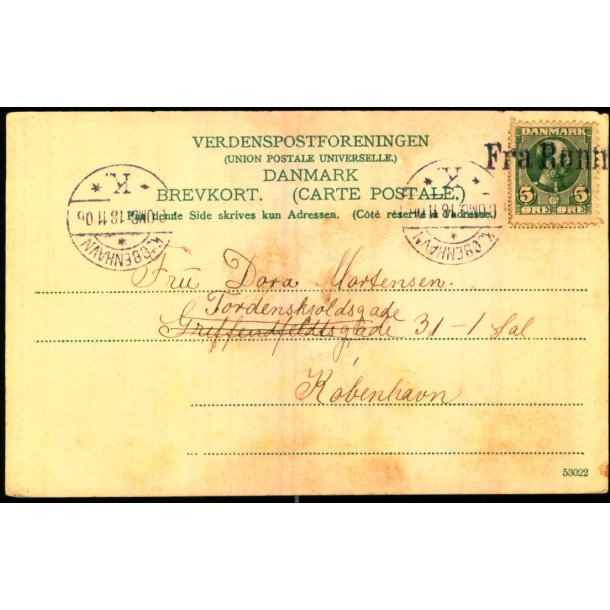 VERDENSPOSTFORENINGEN
(UNION POSTALE UNIVERSELLE.)
DANMARK
BREVKORT. (CARTE POSTALE.)
Paa denne Side skrives kun Adressen. (Côté réservé à l'adresse.)
DANMARK
5 5
ØRE ØRE
Fra Rønn
K.
KJØBENHAVN
K.
KJØBENHAVN
Fru Dora Mortensen.
Tordenskjoldsgade
Greffenfeldtsgade 31-1 Sal
København
53022